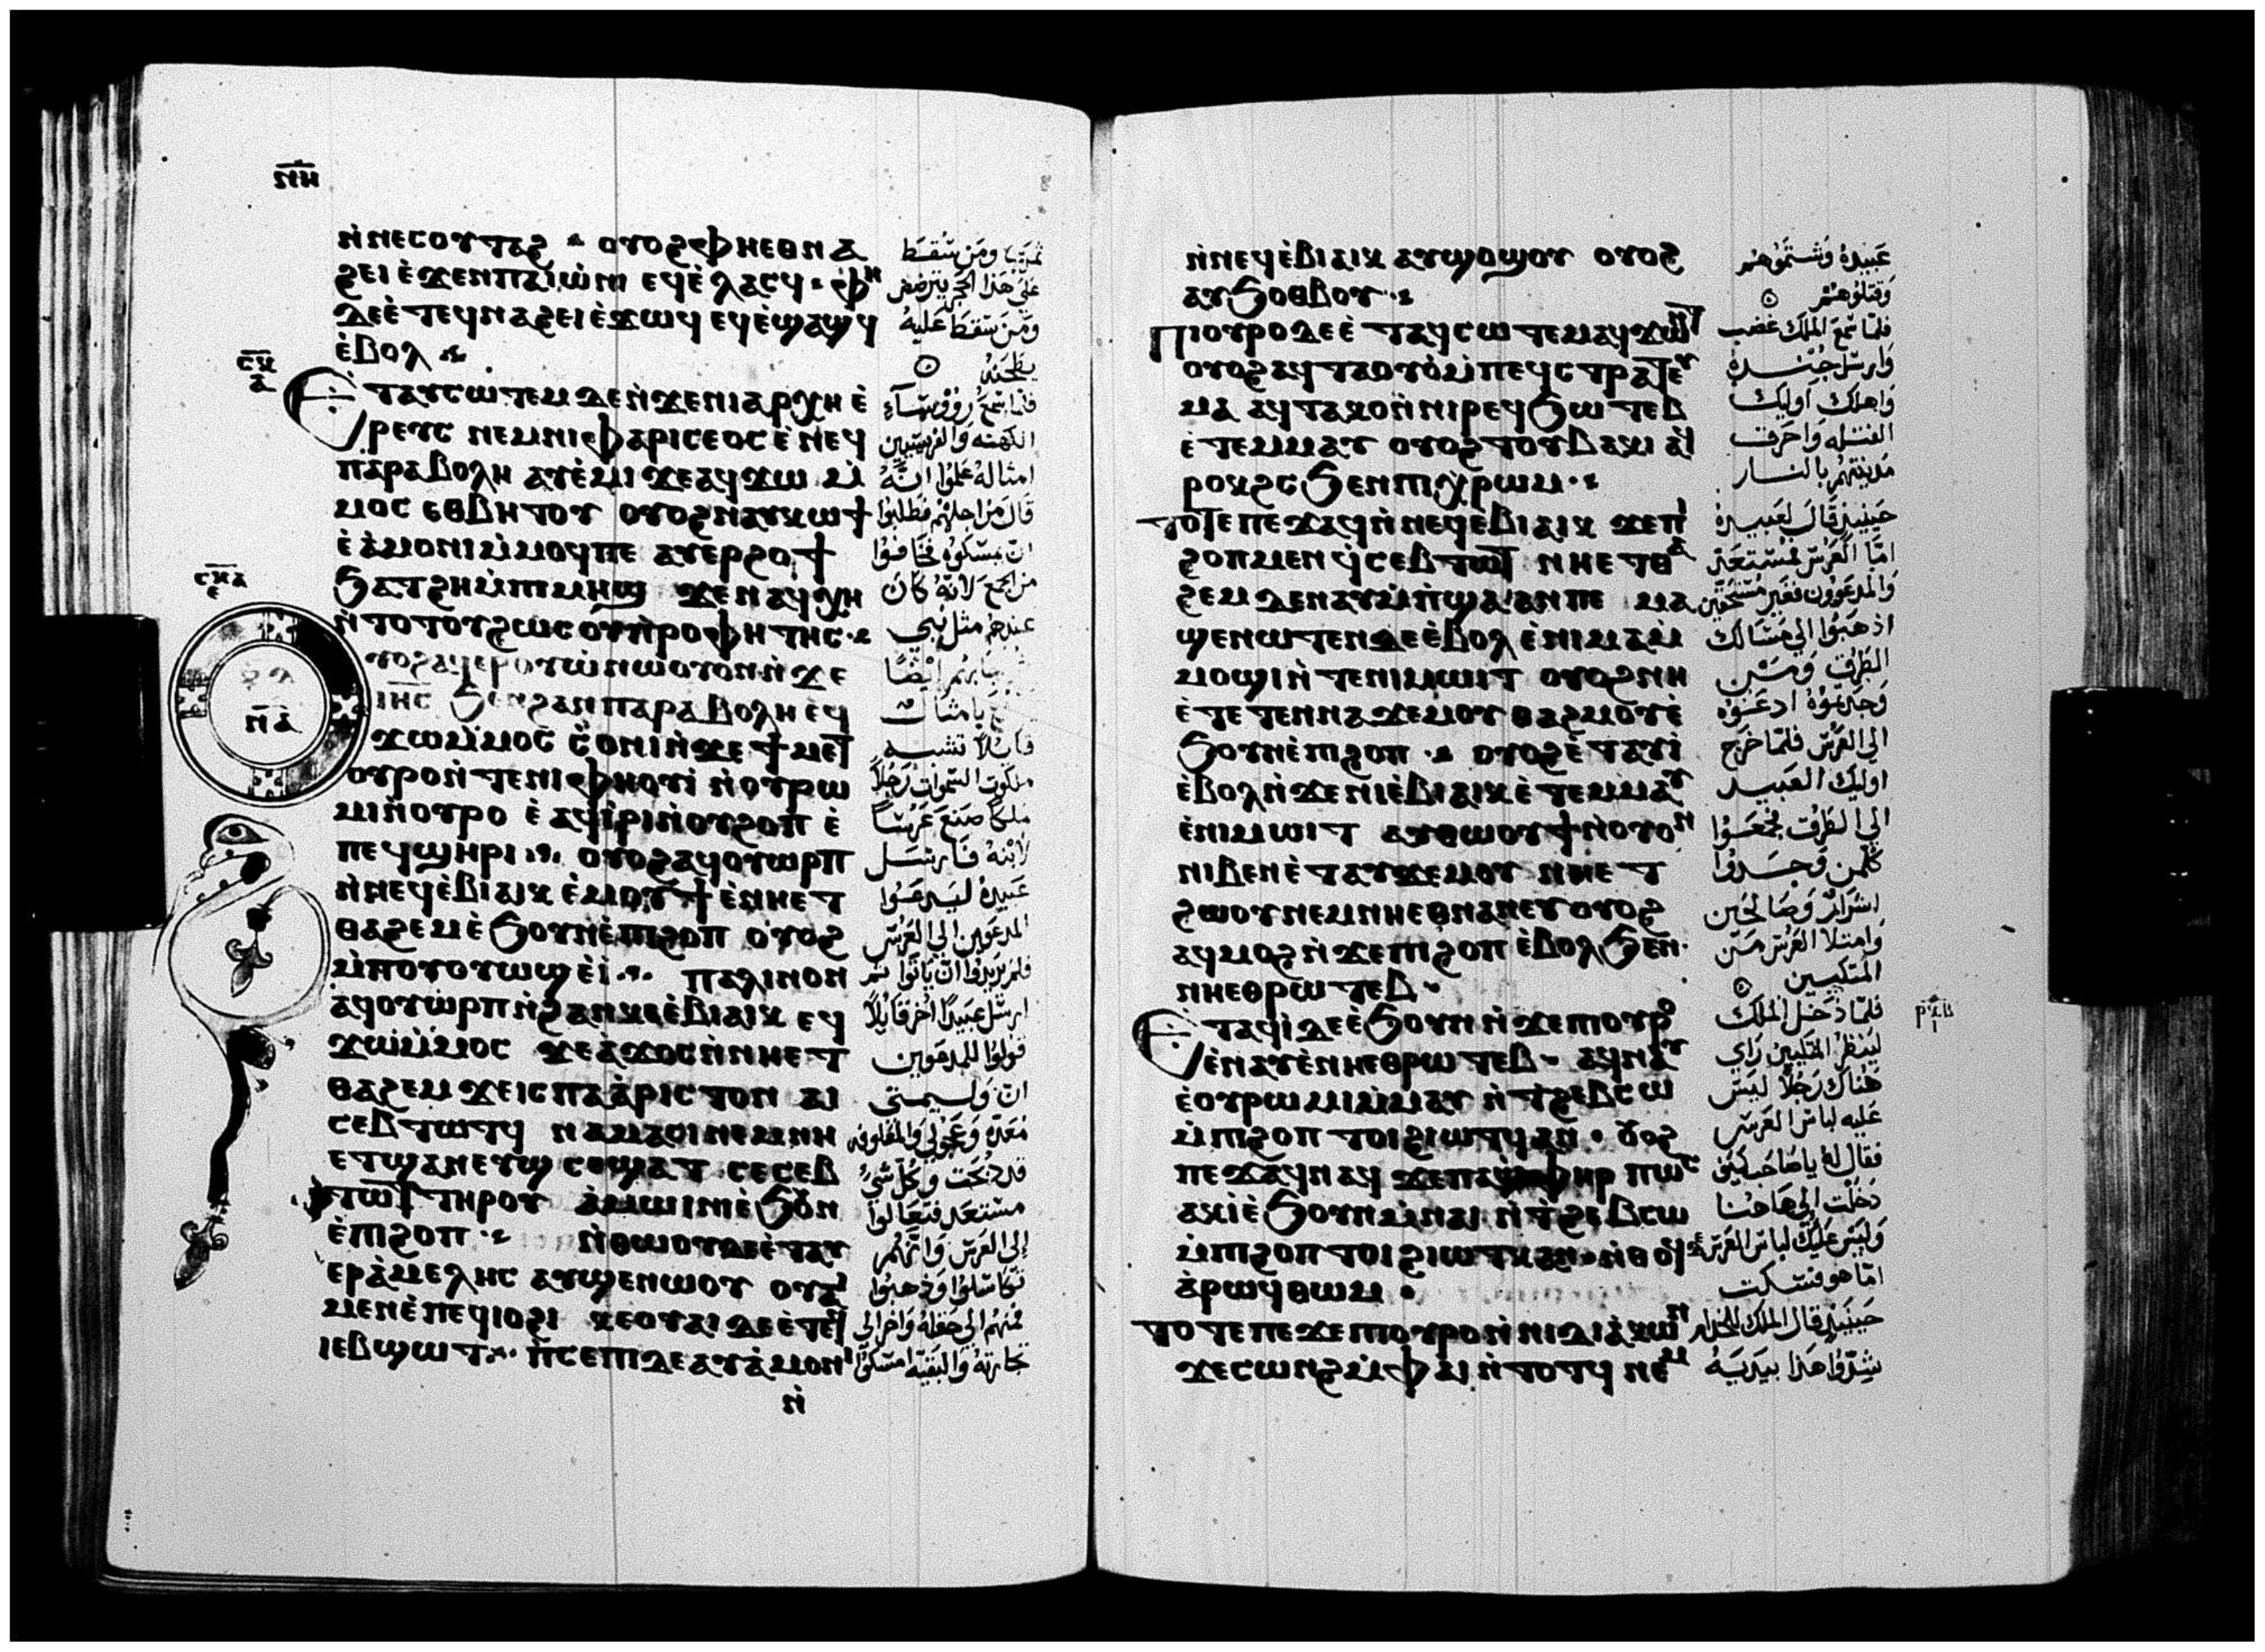 ⲛ̅ⲏ̅
ⲛ̀ⲛⲉⲥⲟⲩⲧⲁϩ ⲟⲩⲟϩ ⲫⲏⲉⲑⲛⲁ
ϩⲉⲓ ⲉ̀ϫⲉⲛⲡⲁⲓⲱ̀ⲛⲓ ⲉϥⲉ̀ⲗⲁⲥϥ ⲫⲏ
ⲇⲉⲉ̀ⲧⲉϥⲛⲁϩⲉⲓⲉ̀ϫⲱϥ ⲉϥⲉ̀ϣⲁϣϥ
ⲉ̀ⲃⲟⲗ
ⲉⲧⲁⲩⲥⲱⲧⲉⲙ ⲇⲉⲛ̀ϫⲉⲛⲓⲁⲣⲭⲏⲉ̀
ⲣⲉⲩⲥ ⲛⲉⲙⲛⲓⲫⲁⲣⲓⲥⲉⲟⲥ ⲉ̀ⲛⲉϥ
ⲡⲁⲣⲁⲃⲟⲗⲏ ⲁⲩⲉ̀ⲙⲓ ϫⲉⲁϥϫⲱ ⲙ̀
ⲙⲟⲥ ⲉⲑⲃⲏⲧⲟⲩ ⲟⲩⲟϩ ⲛⲁⲩⲕⲱϯ
ⲉ̀ⲁ̀ⲙⲟⲛⲓⲙ̀ⲙⲟϥⲡⲉ ⲁⲩⲉⲣϩⲟϯ
ϧⲁⲧϩⲏⲙ̀ⲡⲓⲙⲏϣ ϫⲉⲛⲁϥⲭⲏ
ⲛ̀ⲧⲟⲧⲟⲩϩⲱⲥ ⲟⲩⲡ̀ⲣⲟⲫⲏⲧⲏⲥ
ⲩⲟϩⲁϥⲉⲣⲟⲩⲱ̀ ⲛⲱⲟⲩⲟⲛ ⲛ̀ϫⲉ
ⲓⲏ̅ⲥ̅ ϧⲉⲛϩⲁⲛⲡⲁⲣⲁⲃⲟⲗⲏ ⲉϥ
ϫⲱⲙ̀ⲙⲟⲥ ϭ̀ⲟⲛⲓⲛ̀ϫⲉ ϯⲙⲉⲧ
ⲟⲩⲣⲟⲛ̀ⲧⲉⲛⲓⲫⲏⲟⲩⲓ̀ ⲛ̀ⲟⲩⲣⲱ
ⲙⲓⲛ̀ⲟⲩⲣⲟ ⲉ̀ⲁϥⲓ̀ⲣⲓⲛ̀ⲟⲩϩⲟⲡ ⲉ̀
ⲡⲉϥϣⲏⲣⲓ ⲟⲩⲟϩⲁϥⲟⲩⲱⲣⲡ
ⲛ̀ⲛⲉϥⲉ̀ⲃⲓⲁⲓⲕ ⲉ̀ⲙⲟⲩϯ ⲉ̀ⲛⲏⲉⲧ
ⲑⲁϩⲉⲙⲉ̀ϧⲟⲩⲛⲉ̀ⲡⲓϩⲟⲡ ⲟⲩⲟϩ
ⲙ̀ⲡⲟⲩⲟⲩⲱϣⲉ̀ⲓ̀ ⲡⲁⲗⲓⲛⲟⲛ
ⲁϥⲟⲩⲱⲣⲡⲛ̀ϩⲁⲛⲕⲉⲉ̀ⲃⲓⲁⲓⲕ ⲉϥ
ϫⲱⲙ̀ⲙⲟⲥ ϫⲉⲁϫⲟⲥⲛ̀ⲛⲏⲉⲧ
ⲑⲁϩⲉⲙ ϫⲉⲓⲥⲡⲁⲁ̀ⲣⲓⲥⲧⲟⲛ ⲁⲓ
ⲥⲉⲃⲧⲱⲧϥ ⲛⲁⲙⲁⲥⲓ ⲛⲉⲙⲛⲏ
ⲉⲧϣⲁⲛⲉⲩϣ ⲥⲉϣⲁⲧ ⲥⲉⲥⲉⲃ
ⲧⲱⲧ ⲧⲏⲣⲟⲩ ⲁ̀ⲙⲱⲓⲛⲓ ⲉ̀ϧⲟⲩⲛ
ⲉ̀ⲡⲓϩⲟⲡ ⲛ̀ⲑⲱⲟⲩⲇⲉⲉ̀ⲧⲁⲩ
ⲉⲣⲁ̀ⲙⲉⲗⲏⲥ ⲁⲩϣⲉⲛⲱⲟⲩ ⲟⲩⲁⲓ
ⲙⲉⲛⲉ̀ⲡⲉϥⲓⲟϩⲓ ⲕⲉⲟⲩⲁⲓ ⲇⲉⲉ̀ⲧⲉϥ
ⲓⲉⲃϣⲱⲧ ⲡ̀ⲥⲉⲡⲓ ⲇⲉⲁⲩⲁ̀ⲙⲟⲛⲓ
ⲛ̀
ثمرتها ومن سقط
على هذا الحجر يترضض
ومن سقط عليه
يطحنه
فلما سمع رؤوساء
الكهنه والفريسيين
امثاله علموا انه
قال من اجلهم فطلبوا
ان يمسكوه فخافوا
من الجمع لانه كان
عندهم مثل نبي
ايضًا
بامثال
قايلا تشبه
ملكوت السموات رجلاً
ملكا صنع عرسًا
لابنه فارسل
عبيده ليدعوا
المدعوين الى العرس
فلم يريدوا ان ياتوا ثم
ارسل عبيدًا اخر قايلاً
قولوا للمدعوين
ان وليمتي
معده وعجولي والمعلوفه
قد ذبحت وكل شي
مستعد فتعالوا
الى العرس وانهم
تكاسلوا وذهبوا
فمنهم الى حقله واخر الى
تجارته والبقيه امسكوا
ⲛ̀ⲛⲉϥⲉ̀ⲃⲓⲁⲓⲕ ⲁⲩϣⲟϣⲟⲩ ⲟⲩⲟϩ
ⲁⲩϧⲟⲑⲃⲟⲩ
ⲡⲓⲟⲩⲣⲟⲇⲉⲉ̀ⲧⲁϥⲥⲱⲧⲉⲙ ⲁϥϫⲱⲛⲧ
ⲟⲩⲟϩⲁϥⲧⲁⲟⲩⲟ̀ⲙ̀ⲡⲉϥⲥⲧⲣⲁⲧⲉⲩ
ⲙⲁ ⲁϥⲧⲁⲕⲟⲛ̀ⲛⲓⲣⲉϥϧⲱⲧⲉⲃ
ⲉ̀ⲧⲉⲙⲙⲁⲩ ⲟⲩⲟϩⲧⲟⲩⲃⲁⲕⲓ ⲁϥ
ⲣⲟⲕϩⲥ ϧⲉⲛⲡⲓⲭ̀ⲣⲱⲙ
ⲧⲟⲧⲉⲡⲉϫⲁϥⲛ̀ⲛⲉϥⲉ̀ⲃⲓⲁⲓⲕ ϫⲉⲡⲓ
ϩⲟⲡⲙⲉⲛ ϥ̀ⲥⲉⲃⲧⲱⲧ ⲛⲏⲉⲧⲑⲁ
ϩⲉⲙ ⲇⲉⲛⲁⲩⲙ̀ⲡϣⲁ ⲁⲛⲡⲉ ⲙⲁ
ϣⲉⲛⲱⲧⲉⲛⲇⲉⲉ̀ⲃⲟⲗ ⲉ̀ⲛⲓⲙⲁⲙ̀
ⲙⲟϣⲓⲛ̀ⲧⲉⲛⲓⲙⲱⲓⲧ ⲟⲩⲟϩⲛⲏ
ⲉ̀ⲧⲉⲧⲉⲛⲛⲁϫⲉⲙⲟⲩ ⲑⲁϩⲙⲟⲩⲉ̀
ϧⲟⲩⲛⲉ̀ⲡⲓϩⲟⲡ ⲟⲩⲟϩⲉ̀ⲧⲁⲩⲓ̀
ⲉ̀ⲃⲟⲗⲛ̀ϫⲉⲛⲓⲉ̀ⲃⲓⲁⲓⲕ ⲉ̀ⲧⲉⲙⲙⲁⲩ
ⲉ̀ⲛⲓⲙⲱⲓⲧ ⲁⲩⲑⲱⲟⲩϯⲛ̀ⲟⲩⲟⲛ
ⲛⲓⲃⲉⲛⲉ̀ⲧⲁⲩϫⲉⲙⲟⲩ ⲛⲏⲉⲧ
ϩⲱⲟⲩⲛⲉⲙⲛⲏⲉⲑⲛⲁⲛⲉⲩ ⲟⲩⲟϩ
ⲁϥⲙⲟϩⲛ̀ϫⲉⲡⲓϩⲟⲡ ⲉ̀ⲃⲟⲗϧⲉⲛ
ⲛⲏⲉⲑⲣⲱⲧⲉⲃ
ⲉⲧⲁϥⲓ̀ⲇⲉⲉ̀ϧⲟⲩⲛ ⲛ̀ϫⲉⲡⲓⲟⲩⲣⲟ
ⲉ̀ⲛⲁⲩⲉ̀ⲛⲏⲉⲑⲣⲱⲧⲉⲃ ⲁϥⲛⲁⲩ
ⲉ̀ⲟⲩⲣⲱⲙⲓⲙ̀ⲙⲁⲩ ⲛ̀ⲧϩⲉⲃⲥⲱ
ⲙ̀ⲡⲓϩⲟⲡ ⲧⲟⲓϩⲓⲱⲧϥⲁⲛ ⲟⲩⲟϩ
ⲡⲉϫⲁϥⲛⲁϥ ϫⲉⲡⲁϣⲫⲏⲣ ⲡⲱⲥ
ⲁⲕⲓ̀ⲉ̀ϧⲟⲩⲛⲙ̀ⲛⲁⲓ ⲛ̀ⲧϩⲉⲃⲥⲱ
ⲙ̀ⲡⲓϩⲟⲡ ⲧⲟⲓϩⲓⲱⲧⲕⲁⲛ ⲛ̀ⲑⲟϥ
ⲁ̀ⲣⲱϥⲑⲱⲙ
ⲧⲟⲧⲉⲡⲉϫⲉⲡⲓⲟⲩⲣⲟⲛ̀ⲛⲓⲇⲓⲁ̀ⲕⲱⲛ
ϫⲉⲥⲱⲛϩⲙ̀ⲫⲁⲓ ⲛ̀ⲧⲟⲧϥ ⲛⲉⲙ
عبيده وشتموهم
وقتلوهم
فلما سمع الملك غضب
وارسل جنده
واهلك اوليك
القتله واحرق
مدينتهم بالنار
حينيذ قال لعبيده
اما العرس فمستعد
والمدعوون فغير مستحقين
اذهبوا الى مسالك
الطرق ومن
وجدتموه ادعوه
الى العرس فلما خرج
اوليك العبيد
الى الطرق فجمعوا
كلمن وجدوا
اشرار وصالحين
وامتلا العرس من
المتكيين
فلما دخل الملك
لينظر المتكيين راي
هناك رجلا ليس
عليه لباس العرس
فقال له يا صاحب كيف
دخلت الى هاهنا
وليس عليك لباس العرس
اما هو فسكت
حينيذ قال الملك للخدام
شدوا هذا بيديه